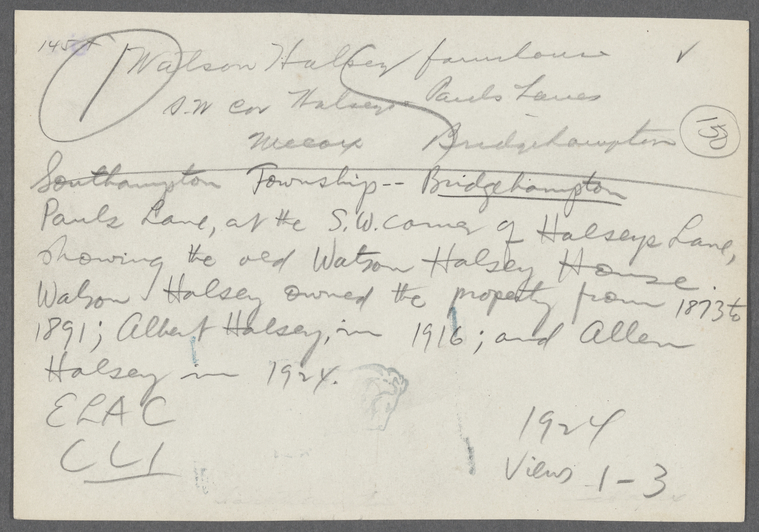 145
Watson Halsey farmhouse ✓
S.W cor Halseys + Pauls Lanes
McCoy Bridgehampton
Southampton Township -- Bridgehampton
Pauls Lane, at the S.W. corner of Halseys Lane,
showing the old Watson Halsey House.
Watson Halsey owned the property from 1873 to
1891; Albert Halsey, in 1916; and Allen
Halsey in 1924.
ELAC
CLI
1924
Views 1-3